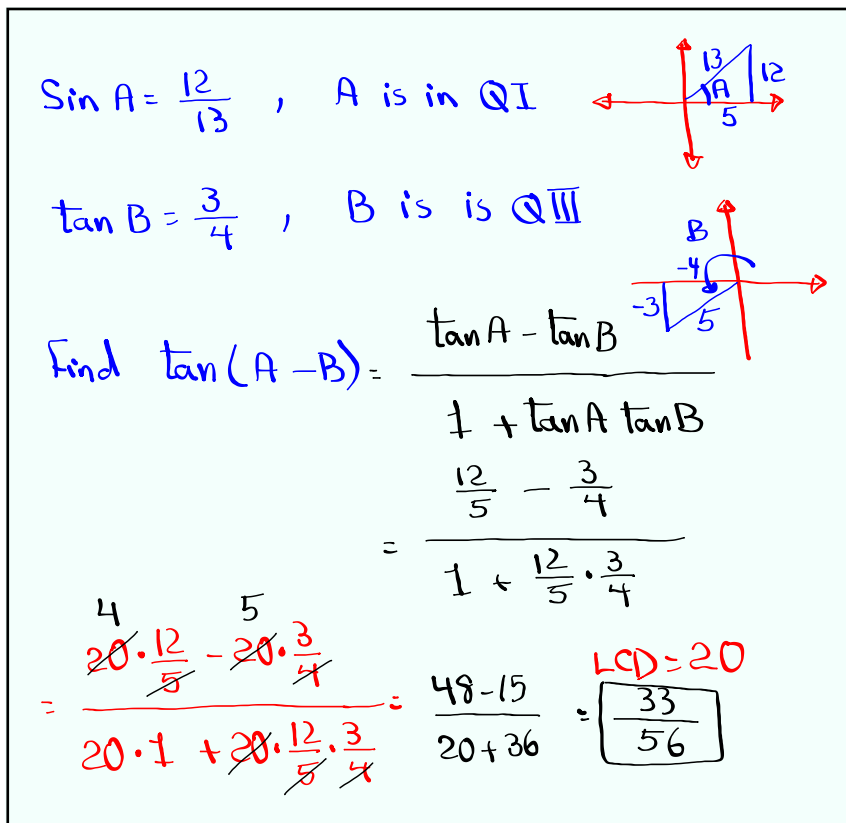 Sin A = 12/13 , A is in QI
13 12 A 5
tan B = 3/4 , B is is QIII
B
-4
-3 5
Find tan(A - B) = (tan A - tan B)/(1 + tan A tan B)
= (12/5 - 3/4)/(1 + 12/5 · 3/4)
4 5
LCD = 20
= (20 · 12/5 - 20 · 3/4)/(20 · 1 + 20 · 12/5 · 3/4) = (48-15)/(20+36) = 33/56